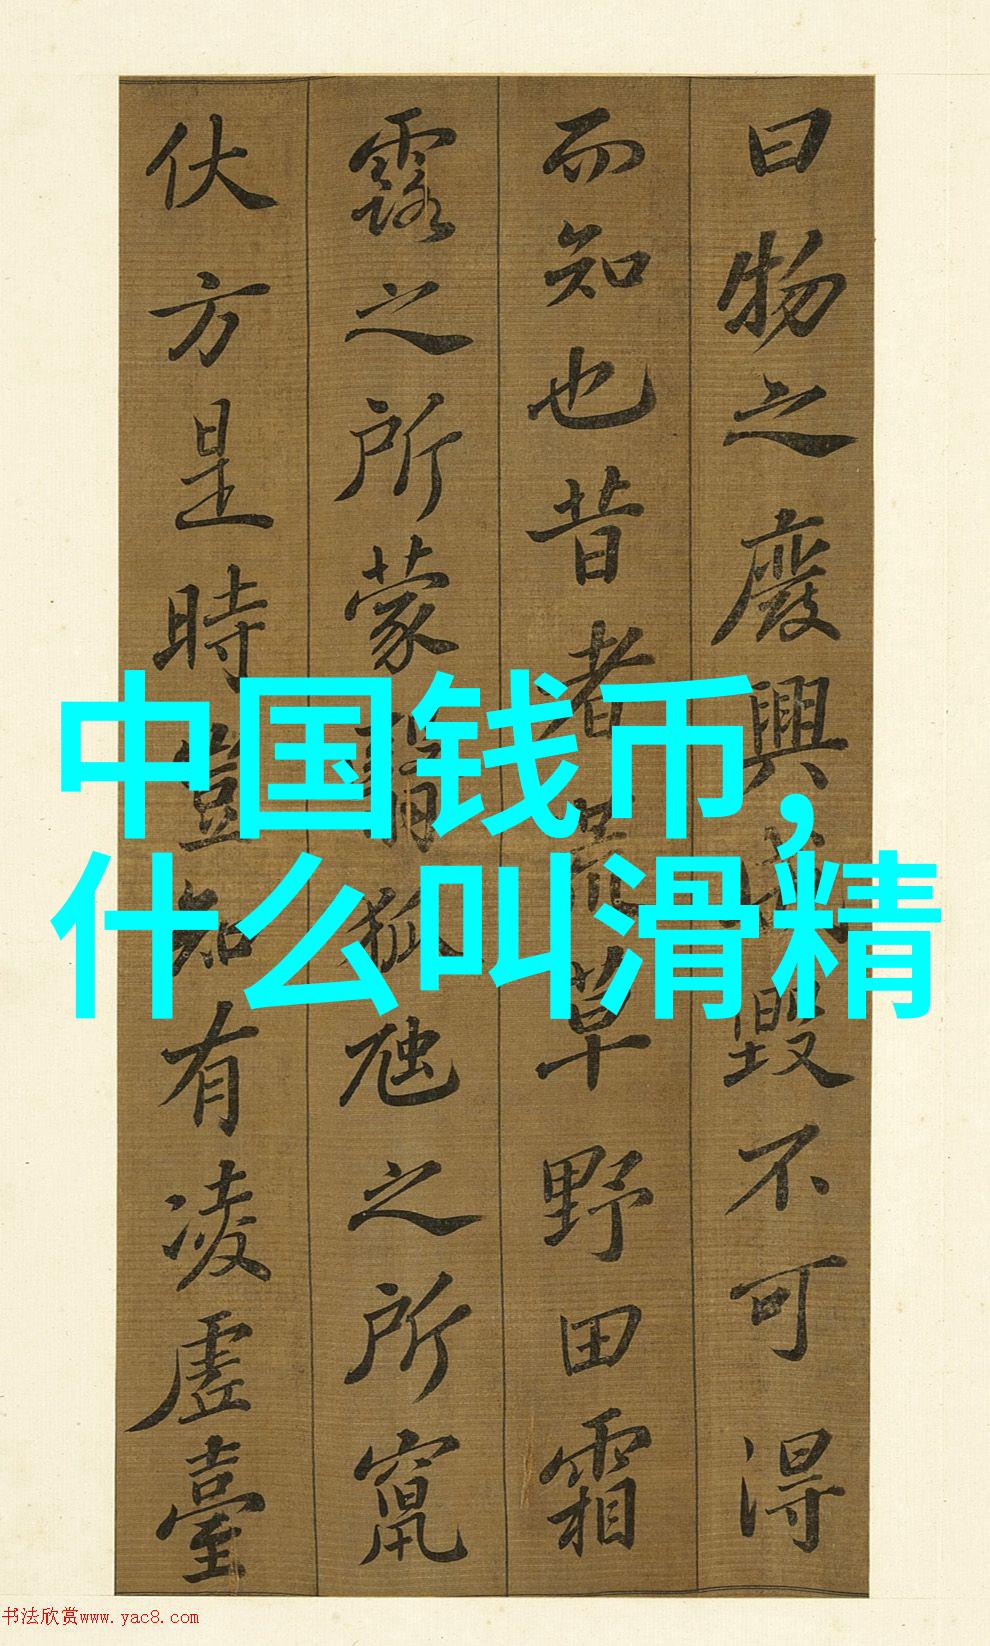 曰物之廢興成毀不可得
而知也昔者荒草野田霜
露之所蒙翳狐虺之所竄
伏方是時豈知有凌虛臺
中国钱币,
什么叫滑精
书法欣赏www.yac8.com